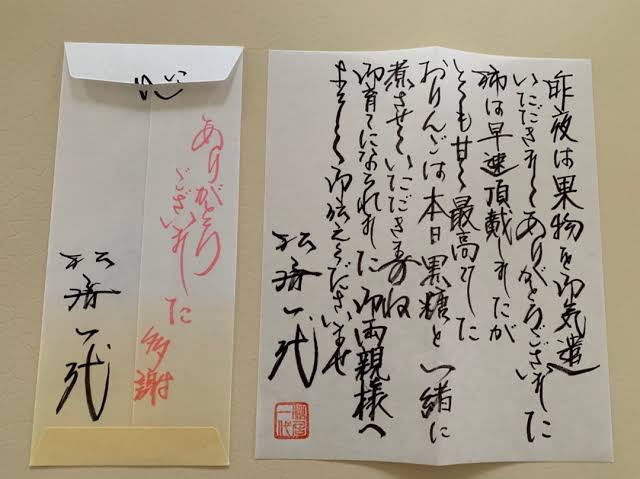 昨夜は果物を御気遣
いただきましてありがとうございました
柿は早速頂戴しましたが
とても甘く最高でした
おりんごは本日黒糖と一緒に
煮させていただきますね
御育てになられました御両親様へ
よろしく御伝えくださいませ
松居一代
松居一代
ありがとう
ございました
多謝
心
松居一代